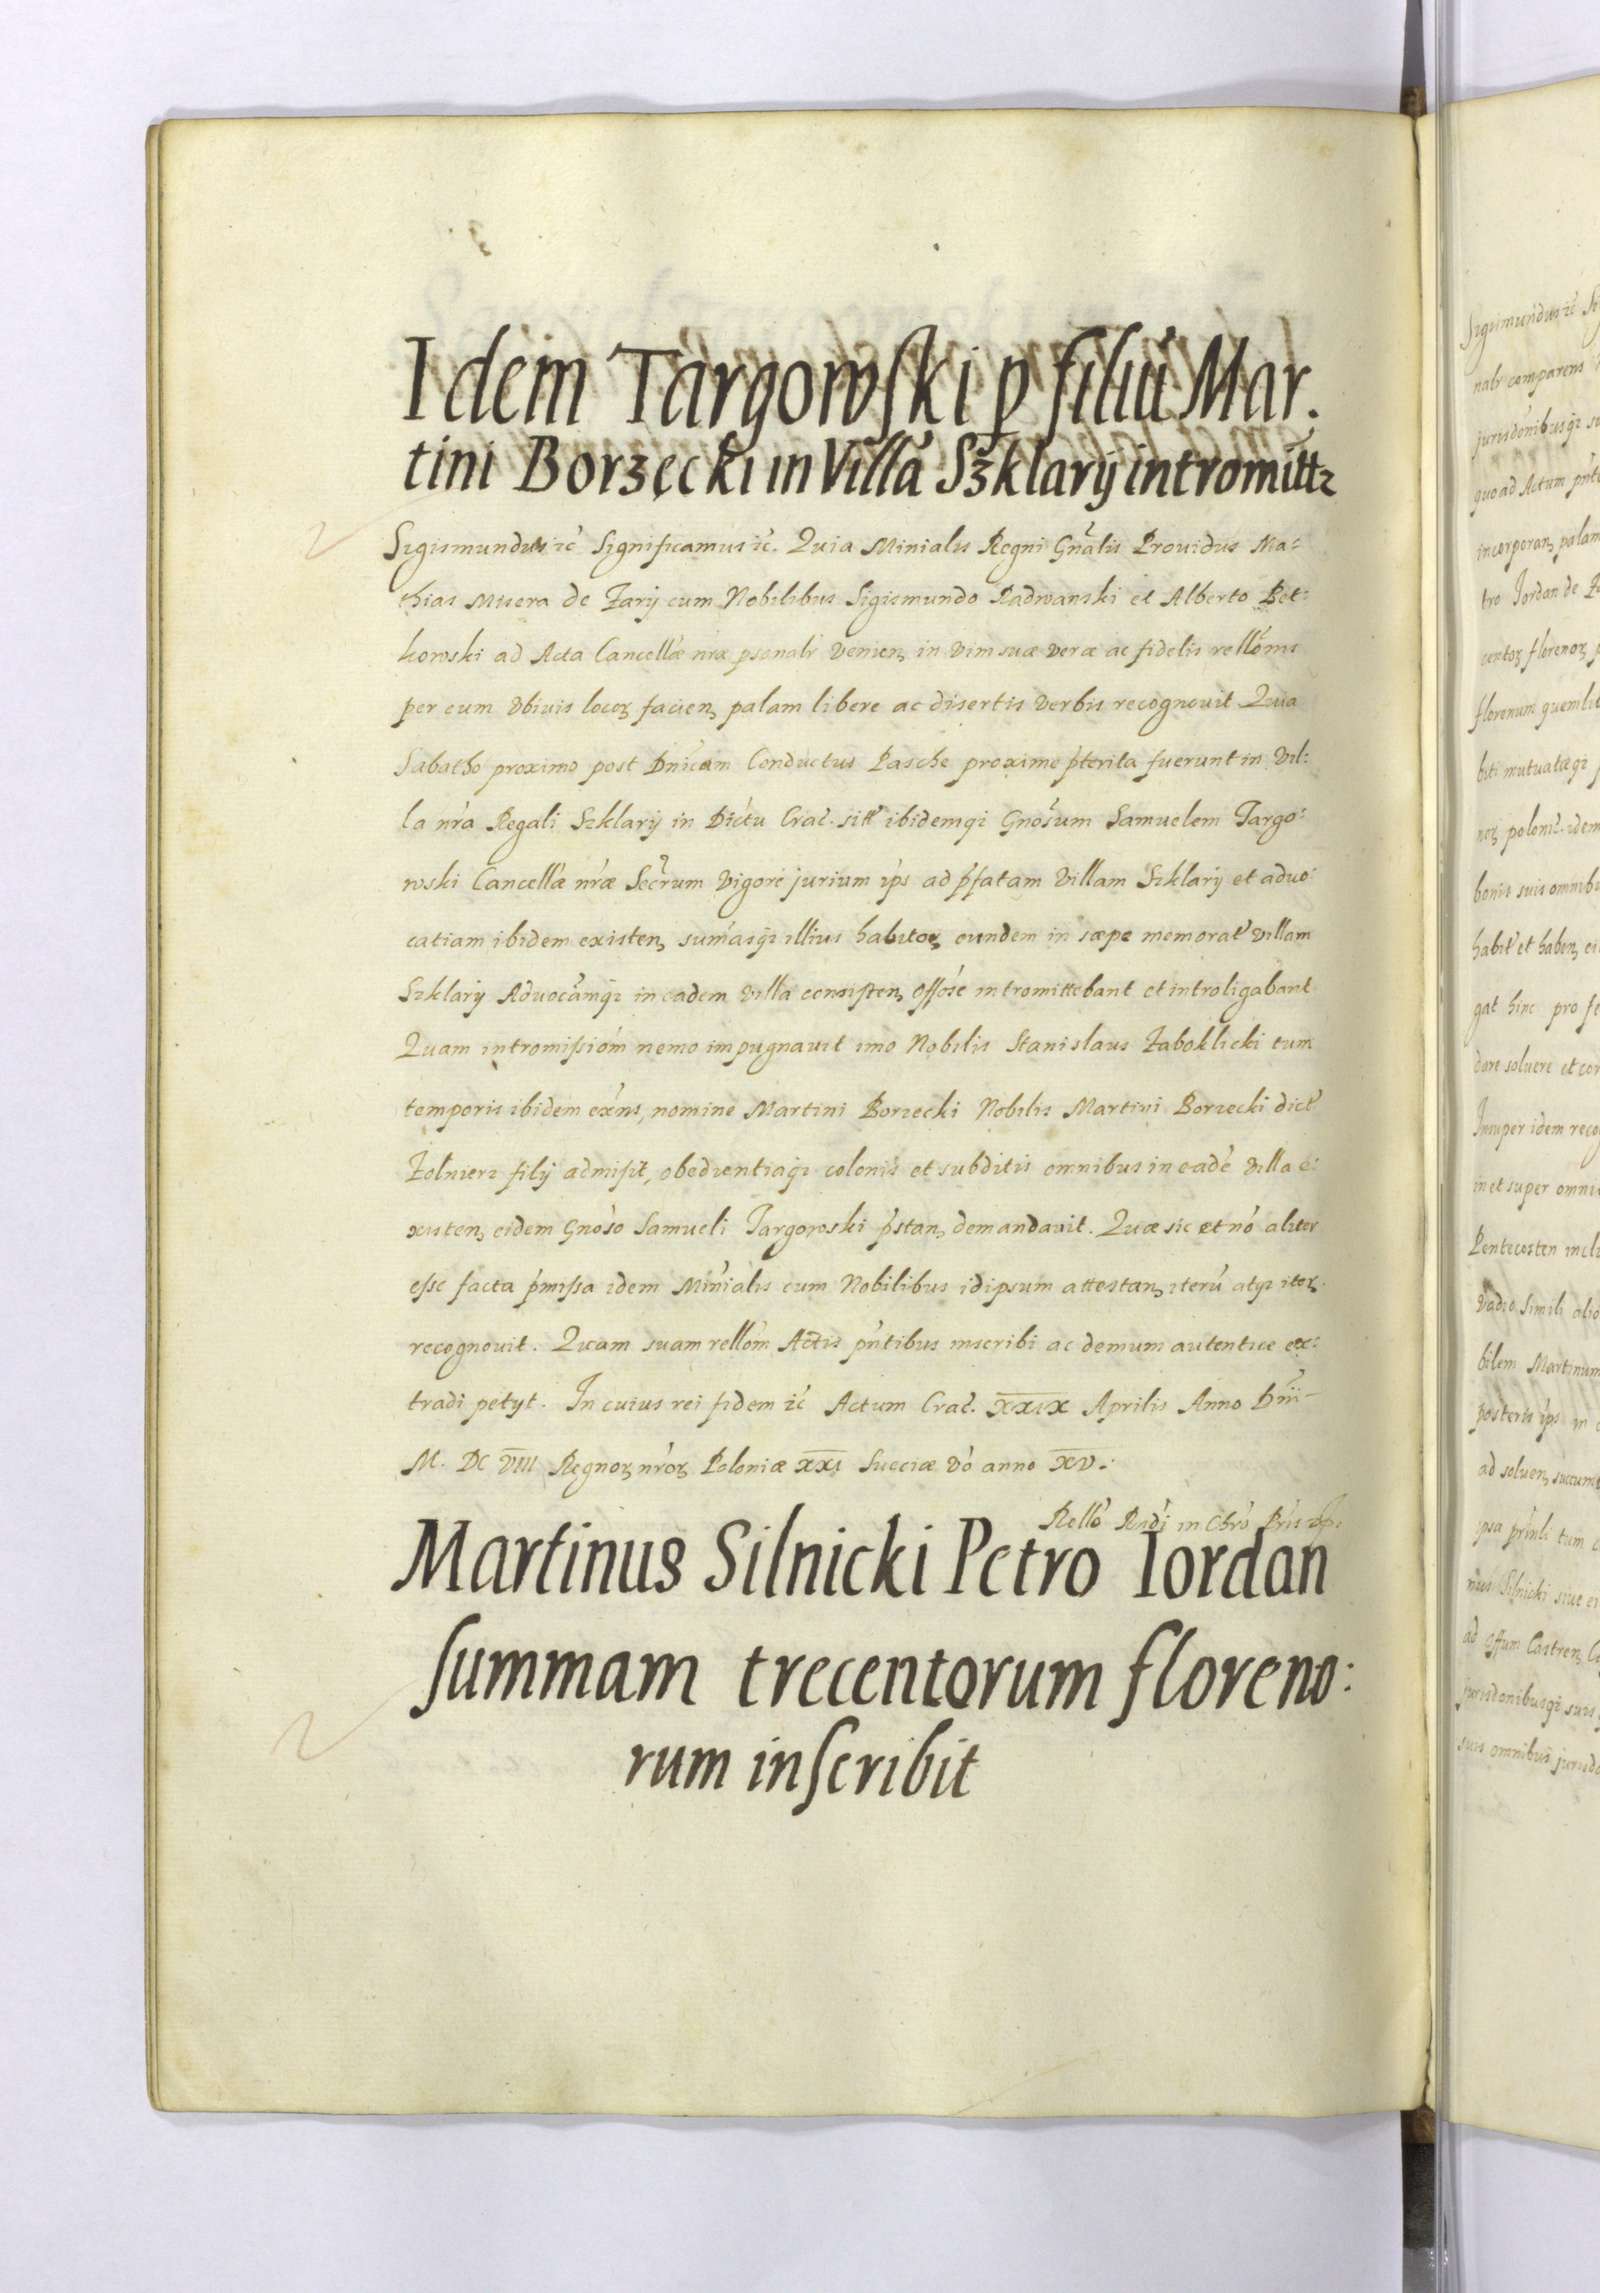 Idem Targowski p filiũ Mar.
tini Borzecki in Villa Szklary intromittr
Sigismundus &c Significamus &c. Quia Minialis Regni Gnalis Prouidus Ma-
thias Misera de Zary cum Nobilibus Sigismundo Radwanski et Alberto Bet:
kowski ad Acta Cancellæ nræ psonalr venien, in vim suæ veræ ac fidelis rellonis
per eum vbiuis locoꝝ facien, palam libere ac disertis verbis recognouit Quia
Sabatho proximo post Dnicam Conductus Pasche proxime pterita fuerunt in Vil:
la nra Regali Szklary in Dictu Crac. sitt ibidemqꝫ Gnosum Samuelem Targo:
wski Cancellæ nræ Secrum vigore jurium ips ad pfatam Villam Szklary et aduo:
catiam ibidem existen, sumasqꝫ illius habitoꝝ eundem in sæpe memorat villam
Szklary Aduocamqꝫ in eadem villa consisten, offose intromittebant et introligabant
Quam intromissiom nemo impugnauit imo Nobilis Stanislaus Zaboklicki tum
temporis ibidem exns, nomine Martini Borzecki Nobilis Martini Borzecki dict
Zolnierz filij admisit, obedientiaqꝫ colonis et subditis omnibus in eadē villa e:
xisten, eidem Gnoso Samueli Targowski pstan, demandauit. Quæ sic et nō aliter
esse facta pmissa idem Minialis cum Nobilibus idipsum attestan, iterū atqꝫ iteꝝ
recognouit. Quam suam rellom Actis pntibus inscribi ac demum autentice ex:
tradi petyt. In cuius rei fidem &c Actum Crac. XXIX Aprilis Anno Dni
M. DC VIII Regnoꝝ nroꝝ Poloniæ XXI Sueciæ vo anno XV.
Rello Rndi in Chro Pris
Martinus Silnicki Petro Iordan
summam trecentorum floreno:
rum inscribit
Sigismundus &c
nalr comparens
quo ad Actum
incorporan, palam
tro Jordan de
centoꝝ florenoꝝ
florenum quemli
biti mutuatæqꝫ
noꝝ polonic. idem
bonis suis omnibu
habit et haben,
gat hinc pro
dare soluere et con
Insuper idem reco
in et super omni
Pentecosten inclu
vadio simili alio
bilem Martinum
posteris ips in
ad soluen, succum
ipsa prinli tum
nus Silnicki siue ei
ad Offum Castren,
jurisdonibusqꝫ suis
suis omnibus jurisdo